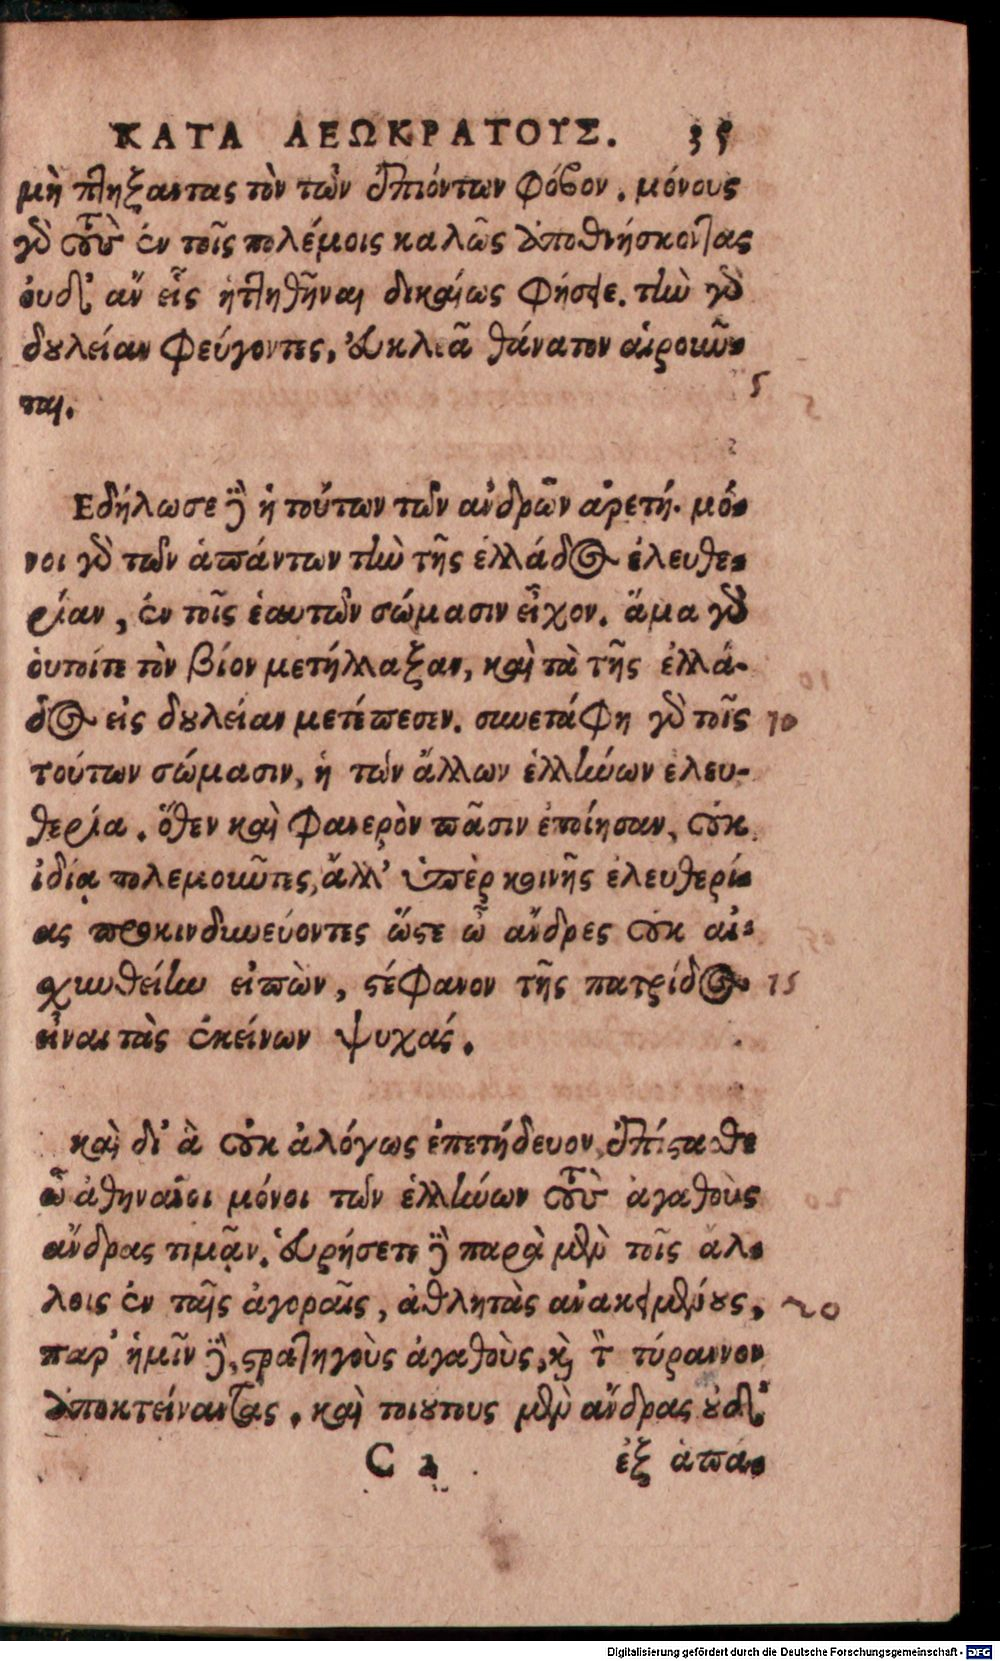 ΚΑΤΑ ΛΕΩΚΡΑΤΟΥΣ. 35
μὴ πτηξαντας τὸν τῶν ἐπιόντων φόβον. μόνους
γὸ τοὺς ἐν τοῖς πολέμοις καλῶς ἀποθνήσκοντας
ὀυδ' ἂν εἷς ἡττηθῆναι δικαίως φήσειε. τὴν γὸ
δουλείαν φεύγοντες, εὐκλεᾶ θάνατον αἱροιῶ-
ται.
5
Εδήλωσε δὲ ἡ τούτων τῶν ἀνδρῶν ἀρετή. μό-
νοι γὸ τῶν ἁπάντων τὴν τῆς ἑλλάδος ἐλευθε-
ρίαν, ἐν τοῖς ἑαυτῶν σώμασιν εἶχον. ἅμα γὸ
ὁυτοίτε τὸν βίον μετήλλαξαν, καὶ τὰ τῆς ἑλλά-
δος εἰς δουλείαν μετέπεσεν. συνετάφη γὸ τοῖς 10
τούτων σώμασιν, ἡ τῶν ἄλλων ἑλλήνων ἐλευ-
θερία. ὅθεν καὶ φανερὸν πᾶσιν ἐποίησαν, οὐκ
ἰδίᾳ πολεμοιῶτες, ἄλλ' ὑπὲρ κοινῆς ἐλευθερί-
ας προκινδυνεύοντες ὥστε ὦ ἄνδρες οὐκ αἰ-
χυνθείην εἰπὼν, στέφανον τῆς πατρίδος 15
εἶναι τὰς ἐκείνων ψυχάς.
καὶ δι' ἃ οὐκ ἀλόγως ἐπετήδευον, ἐπίστασθε
ὦ ἀθηναῖοι μόνοι τῶν ἑλλήνων τοὺς ἀγαθοὺς
ἄνδρας τιμᾷν. εὑρήσετε δὲ παρὰ μὲν τοῖς ἄλ-
λοις ἐν ταῖς ἀγοραῖς, ἀθλητὰς ἀνακειμένους, 20
παρ' ἡμῖν δὲ, στρατηγοὺς ἀγαθοὺς, καὶ τὸν τύραννον
ἀποκτείναντας. καὶ τοιούτους μὲν ἄνδρας οὐδ'
C 2 ἐξ ἁπά-
Digitalisierung gefördert durch die Deutsche Forschungsgemeinschaft - DFG